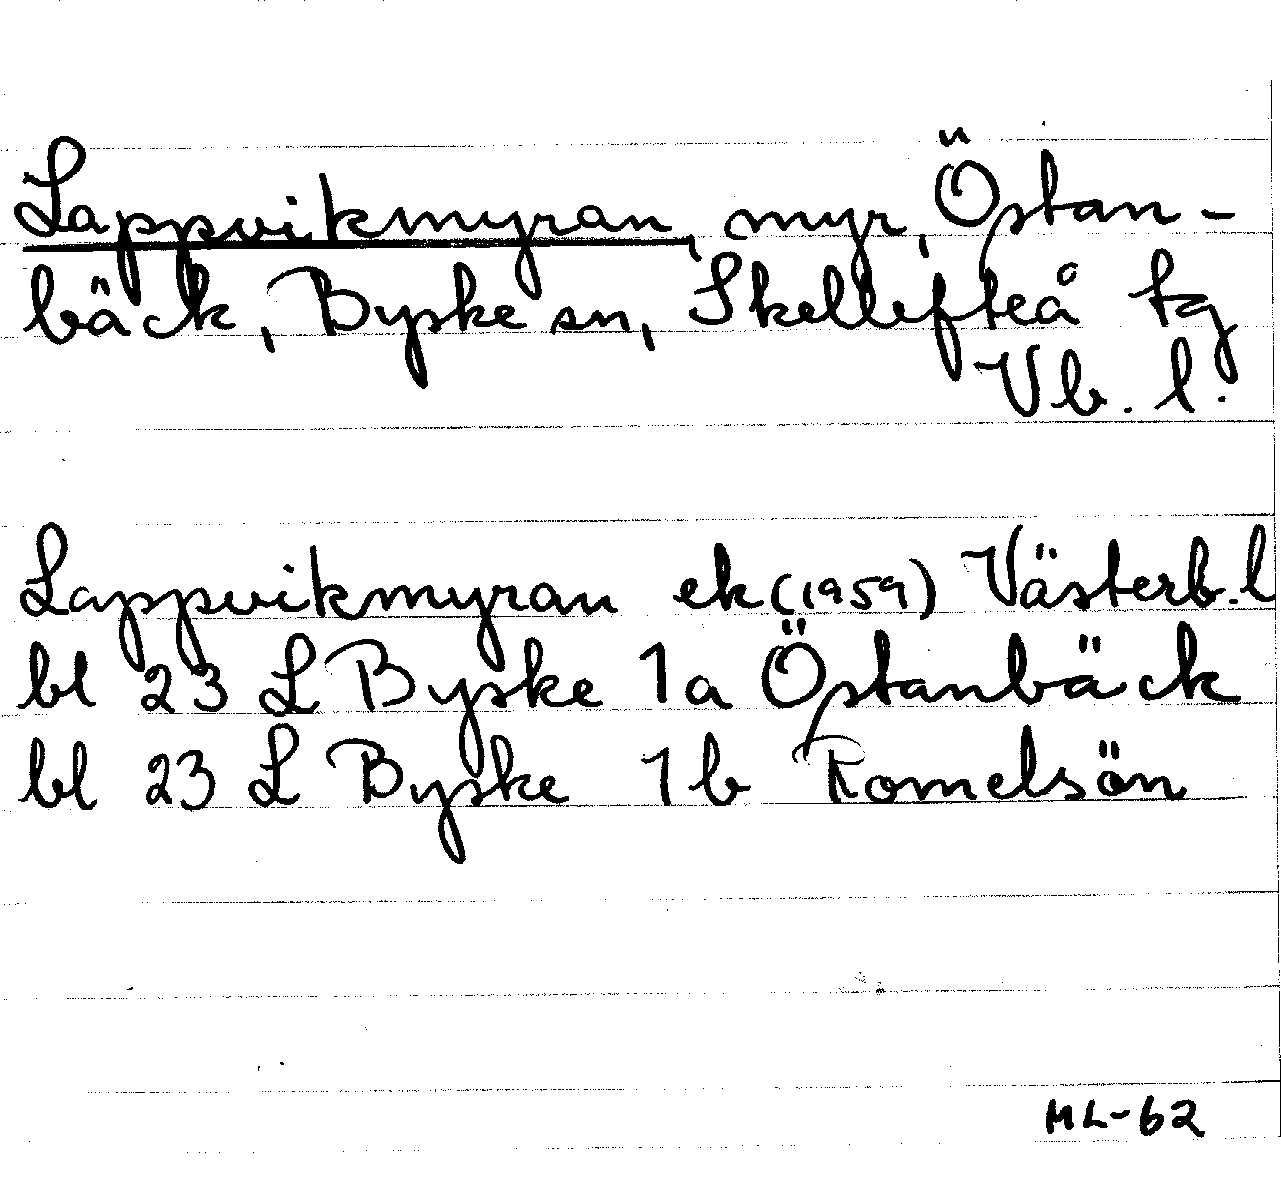 Lappvikmyran, myr, Östan-
bäck, Byske sn, Skellefteå tg
Vb. l.
Lappvikmyran ek (1959) Västerb. l
bl 23 L Byske 1a Östanbäck
bl 23 L Byske 1b Romelsön
ML-62